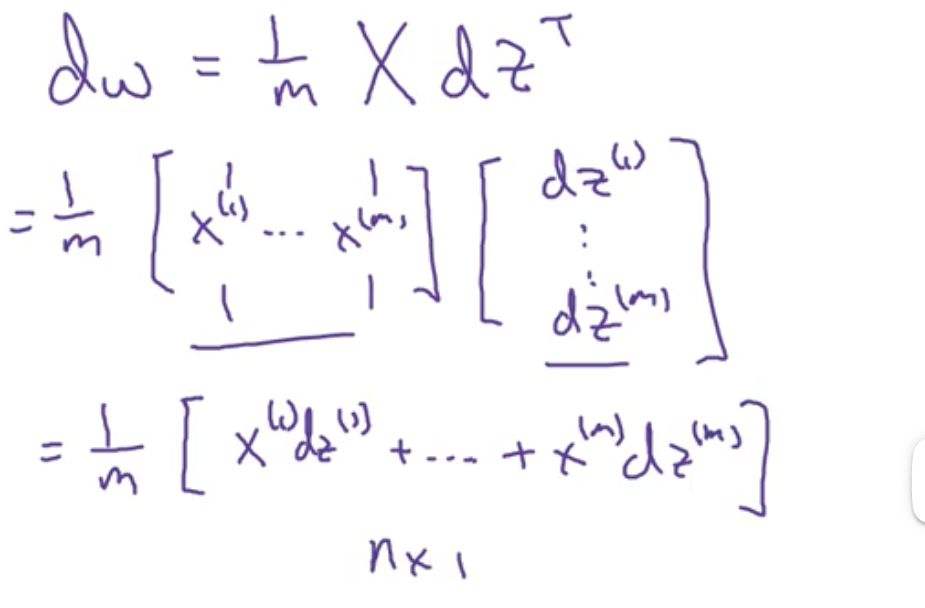 dw = 1/m X dz^T
= 1/m [ x^(1) ... x^(m) ] [ dz^(1) ⋮ dz^(m) ]
= 1/m [ x^(1)dz^(1) + .... + x^(m)dz^(m) ]
n×1